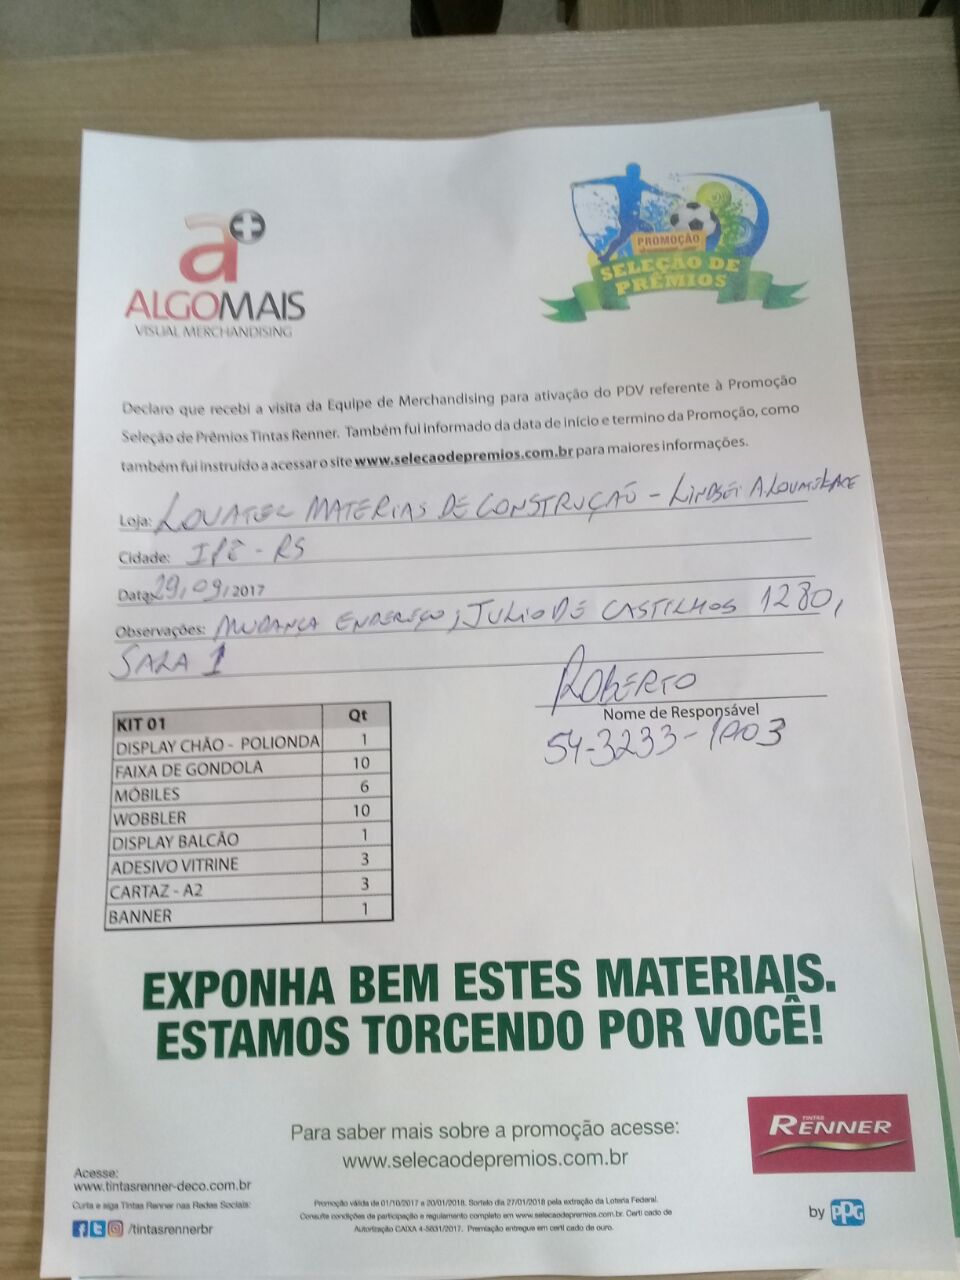 a+
ALGOMAIS
VISUAL MERCHANDISING
PROMOÇÃO
SELEÇÃO DE
PRÊMIOS
Declaro que recebi a visita da Equipe de Merchandising para ativação do PDV referente à Promoção
Seleção de Prêmios Tintas Renner. Também fui informado da data de inicio e termino da Promoção, como
também fui instruído a acessar o site www.selecaodepremios.com.br para maiores informações.
Loja: MATERIAS DE CONSTRUÇÃO -
Cidade: IPÊ - RS
Data: 29/09/2017
Observações: MUDANÇA ENDEREÇO; JULIO DE CASTILHOS 1280,
SALA 1
ROBERTO
Nome de Responsável
54-3233-
KIT 01 Qt
DISPLAY CHÃO - POLIONDA 1
FAIXA DE GONDOLA 10
MÓBILES 6
WOBBLER 10
DISPLAY BALCÃO 1
ADESIVO VITRINE 3
CARTAZ - A2 3
BANNER 1
EXPONHA BEM ESTES MATERIAIS.
ESTAMOS TORCENDO POR VOCÊ!
Para saber mais sobre a promoção acesse:
www.selecaodepremios.com.br
TINTAS
RENNER
by PPG
Acesse:
www.tintasrenner-deco.com.br
Curta e siga Tintas Renner nas Redes Sociais:
/tintasrennerbr
Promoção válida de 01/10/2017 a 20/01/2018. Sorteio dia 27/01/2018 pela extração da Loteria Federal.
Consulte condições de participação e regulamento completo em www.selecaodepremios.com.br. Certi cado de
Autorização CAIXA 4-5631/2017. Premiação entregue em certi cado de ouro.